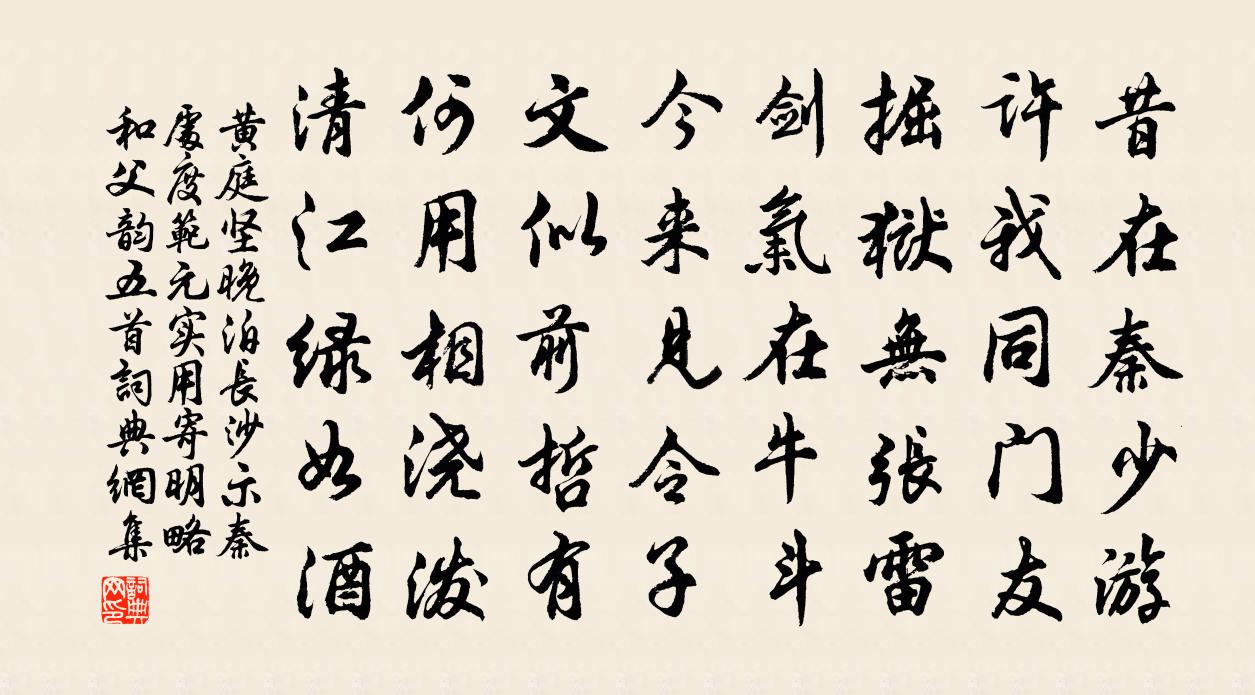 昔在秦少游
許我同门友
掘獄無張雷
劍氣在牛斗
今来見令子
文似前哲有
何用相浇泼
清江绿如酒
黄庭坚晚泊長沙示秦
處度範元实用寄明略
和父韵五首詞典網集
詞典
网印